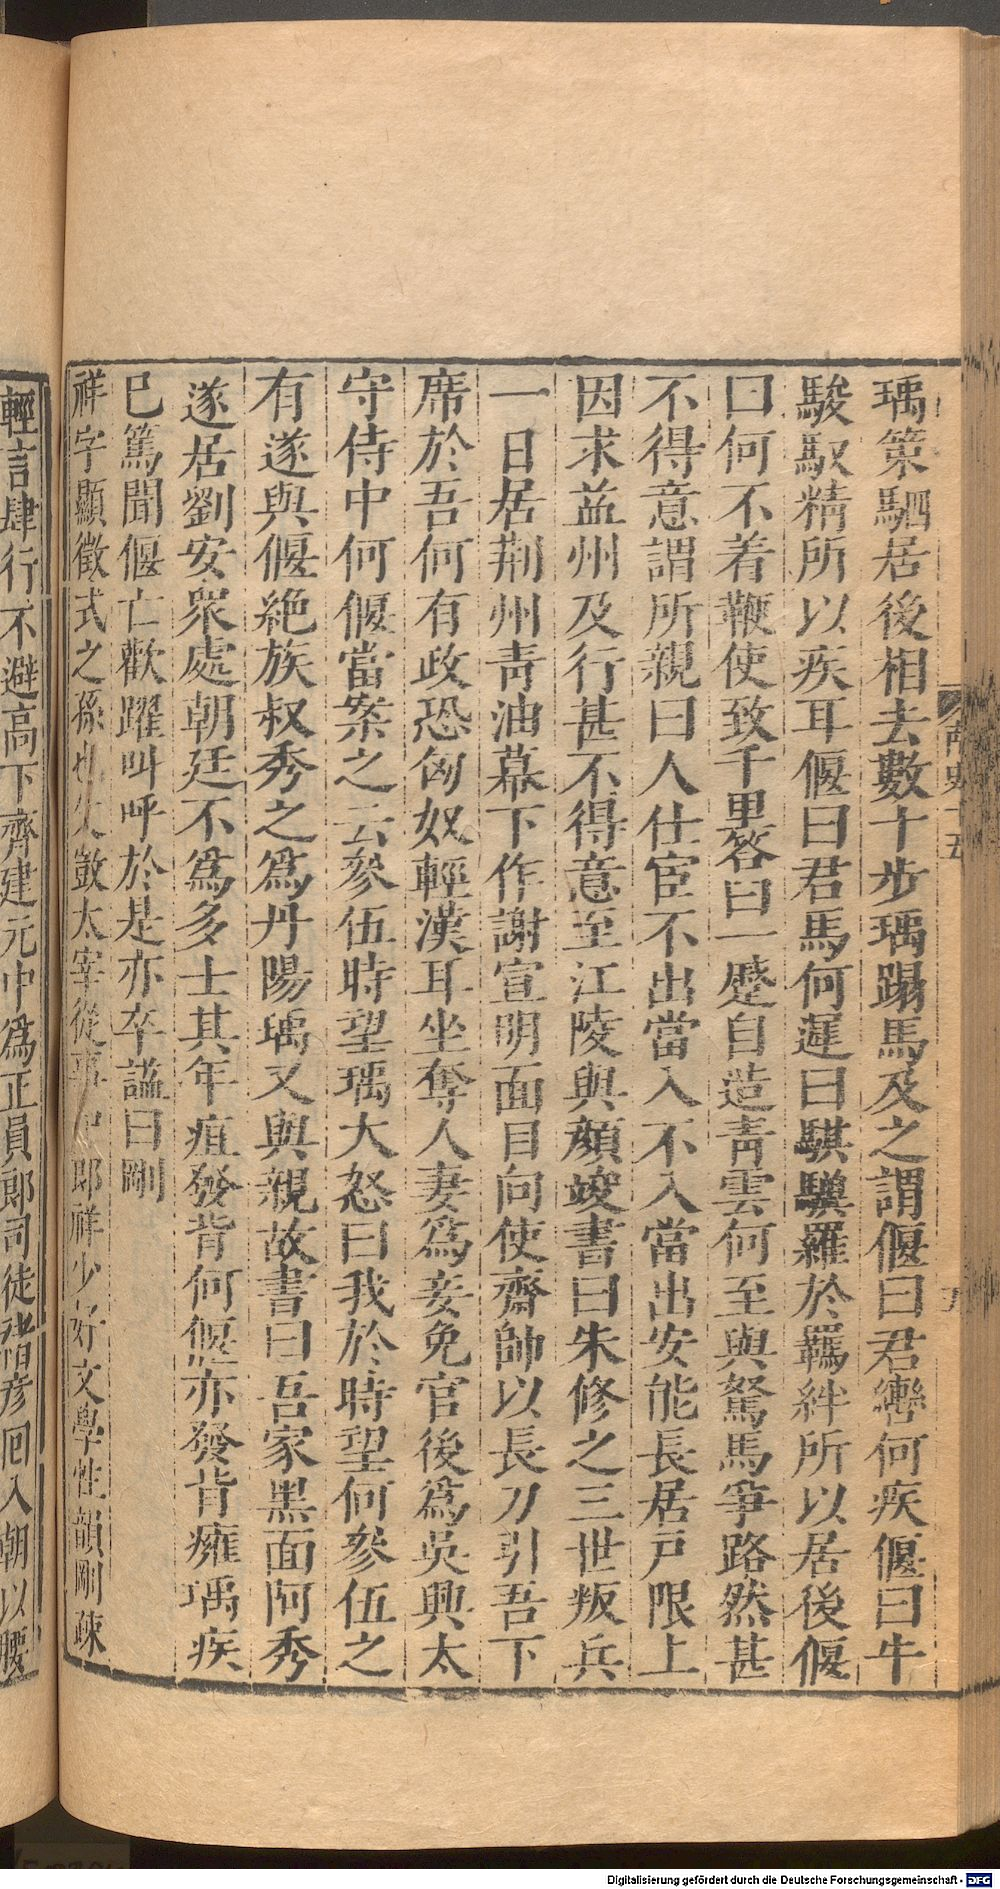 瑀策駟居後相去數十步瑀蹋馬及之謂偃曰君轡何疾偃曰牛
駿馭精所以疾耳偃曰君馬何遲曰騏驥羅於羈絆所以居後偃
曰何不着鞭使致千里答曰一蹙自造青雲何至與駑馬爭路然甚
不得意謂所親曰人仕宦不出當入不入當出安能長居戶限上
因求益州及行甚不得意至江陵與顏竣書曰朱修之三世叛兵
一日居荆州青油幕下作謝宣明面目向使齋帥以長刀引吾下
席於吾何有政恐匈奴輕漢耳坐奪人妻爲妾免官後爲吳興太
守侍中何偃當案之云參伍時望瑀大怒曰我於時望何參伍之
有遂與偃絶族叔秀之爲丹陽瑀又與親故書曰吾家黑面阿秀
遂居劉安衆處朝廷不爲多士其年疽發背何偃亦發背癰瑀疾
已篤聞偃亡歡躍叫呼於是亦卒謚曰剛
祥字顯徵式之孫也父敳太宰從事中郎祥少好文學性韻剛疎
輕言肆行不避高下齊建元中爲正員郎司徒褚彥回入朝以腰
南史十五
Digitalisierung gefördert durch die Deutsche Forschungsgemeinschaft - DFG